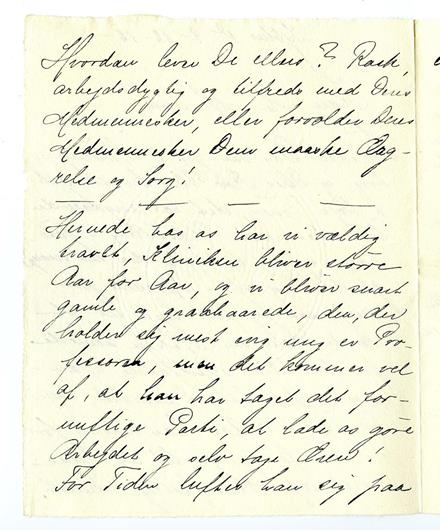 Hvordan lever De ellers? Rask,
arbejdsdygtig og tilfreds med Deres
Medmennesker, eller forvolder Deres
Medmennesker Dem maaske Ærg-
relse og Sorg!
Hernede hos os har vi vældig
travlt, Kliniken bliver større
Aar for Aar, og vi bliver snart
gamle og graahaarede, den, der
holder sig mest evig ung er Pro-
fessoren, men det kommer vel
af, at han har taget det for-
nuftige Parti, at lade os göre
Arbejdet og selv tage Æren!
For Tiden lufter han sig paa